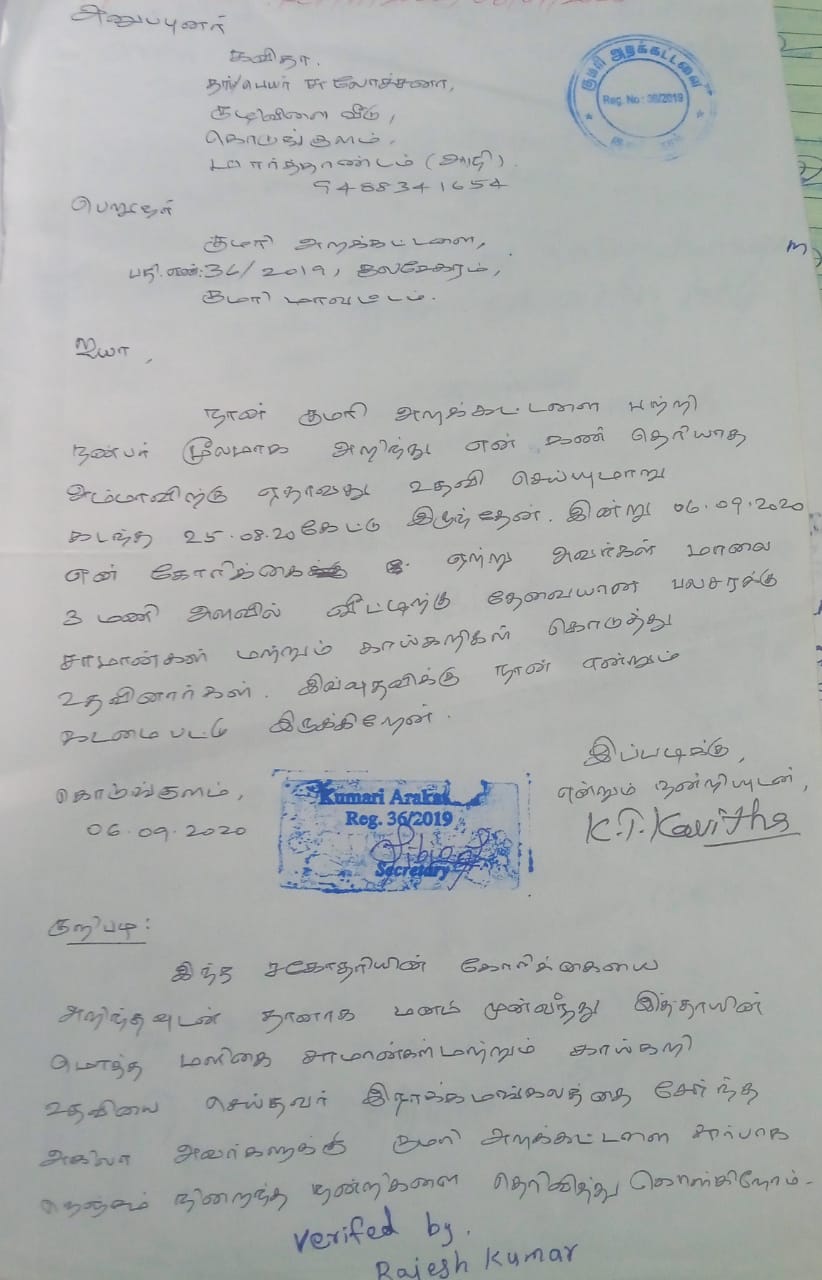 அனுப்புனர்
கவிதா.
தா/பெயர் சுலோச்சனா,
குடிவிளை வீடு,
கொடுங்குளம்,
மார்த்தாண்டம் (அஞ்)
9488341654
குமரி அறக்கட்டளை
Reg. No : 36/2019
பெறுநர்
குமரி அறக்கட்டளை,
பதி.எண்:36/2019, குலசேகரம்,
குமரி மாவட்டம்.
ஐயா,
நான் குமரி அறக்கட்டளை பற்றி
நண்பர் மூலமாக அறிந்து என் கண் தெரியாத
அம்மாவிற்கு ஏதாவது உதவி செய்யுமாறு
கடந்த 25.08.20 கேட்டு இருந்தேன். இன்று 06.09.2020
என் கோரிக்கை ஏற்று அவர்கள் மாலை
3 மணி அளவில் வீட்டிற்கு தேவையான பலசரக்கு
சாமான்கள் மற்றும் காய்கறிகள் கொடுத்து
உதவினார்கள். இவ்வுதவிக்கு நான் என்றும்
கடமைபட்டு இருக்கிறேன்.
இப்படிக்கு,
என்றும் நன்றியுடன்,
K.T.Kavitha
கொடுங்குளம்,
06.09.2020
Kumari
Reg. 36/2019
Secretary
குறிப்பு:
இந்த சகோதரியின் கோரிக்கையை
அறிந்தவுடன் தானாக மனம் முன்வந்து இத்தாயின்
மொத்த மளிகை சாமான்கள் மற்றும் காய்கறி
உதவியை செய்தவர் இநாக்கமங்கலத்தை சேர்ந்த
அகிலா அவர்களுக்கு குமரி அறக்கட்டளை சார்பாக
நெஞ்சம் நிறைந்த நன்றிகளை தெரிவித்து கொள்கிறோம்.
verifed by.
Rajesh Kumar